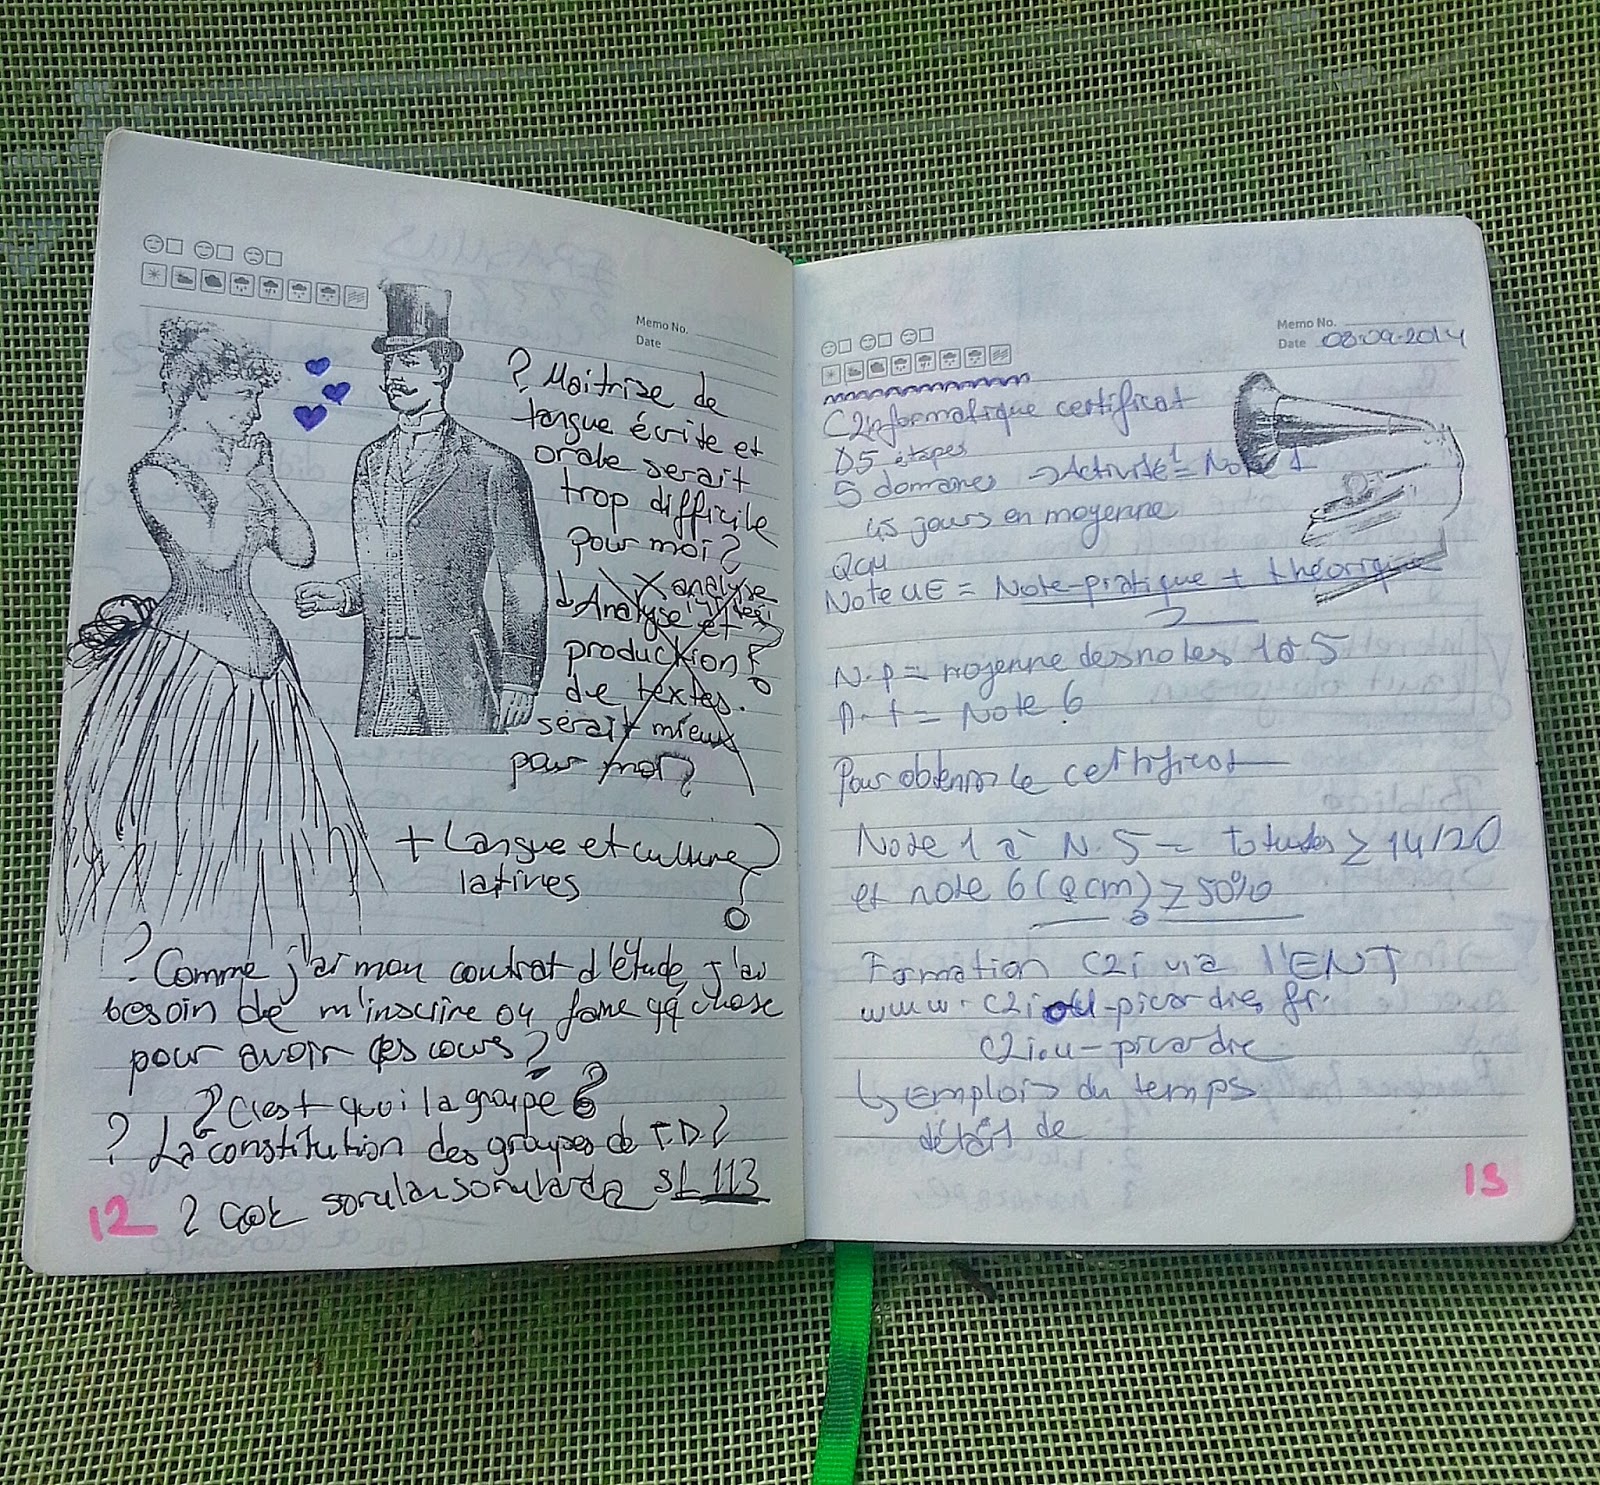 Memo No.
Date
? Maitrise de
langue écrite et
orale serait
trop difficile
pour moi?
analyse
Analyse et
production
de textes.
serait mieux
pour moi?
+ Langue et culture
latines ?
? Comme j'ai mon contrat d'étude, j'ai
besoin de m'inscrire ou faire qq chose
pour avoir des cours?
? C'est quoi la groupé ?
? La constitution des groupes de T.D?
? Çok sorular sorularda SL 113
12
Memo No.
Date 08.09.2014
C2informatique certificat
D5 étapes
5 domaines → Activité 1 = Note 1
45 jours en moyenne
QCM
Note UE = Note-pratique + théorique
2
N.p = moyenne des notes 1 à 5
N.t = Note 6
Pour obtenir le certificat
Note 1 à N.5 = toutes ≥ 14/20
et note 6 (Qcm) ≥ 50%
Formation C2i via l'ENT
www.c2i-picardie.fr.
c2i.u-picardie
↳ emplois du temps
détail de
13